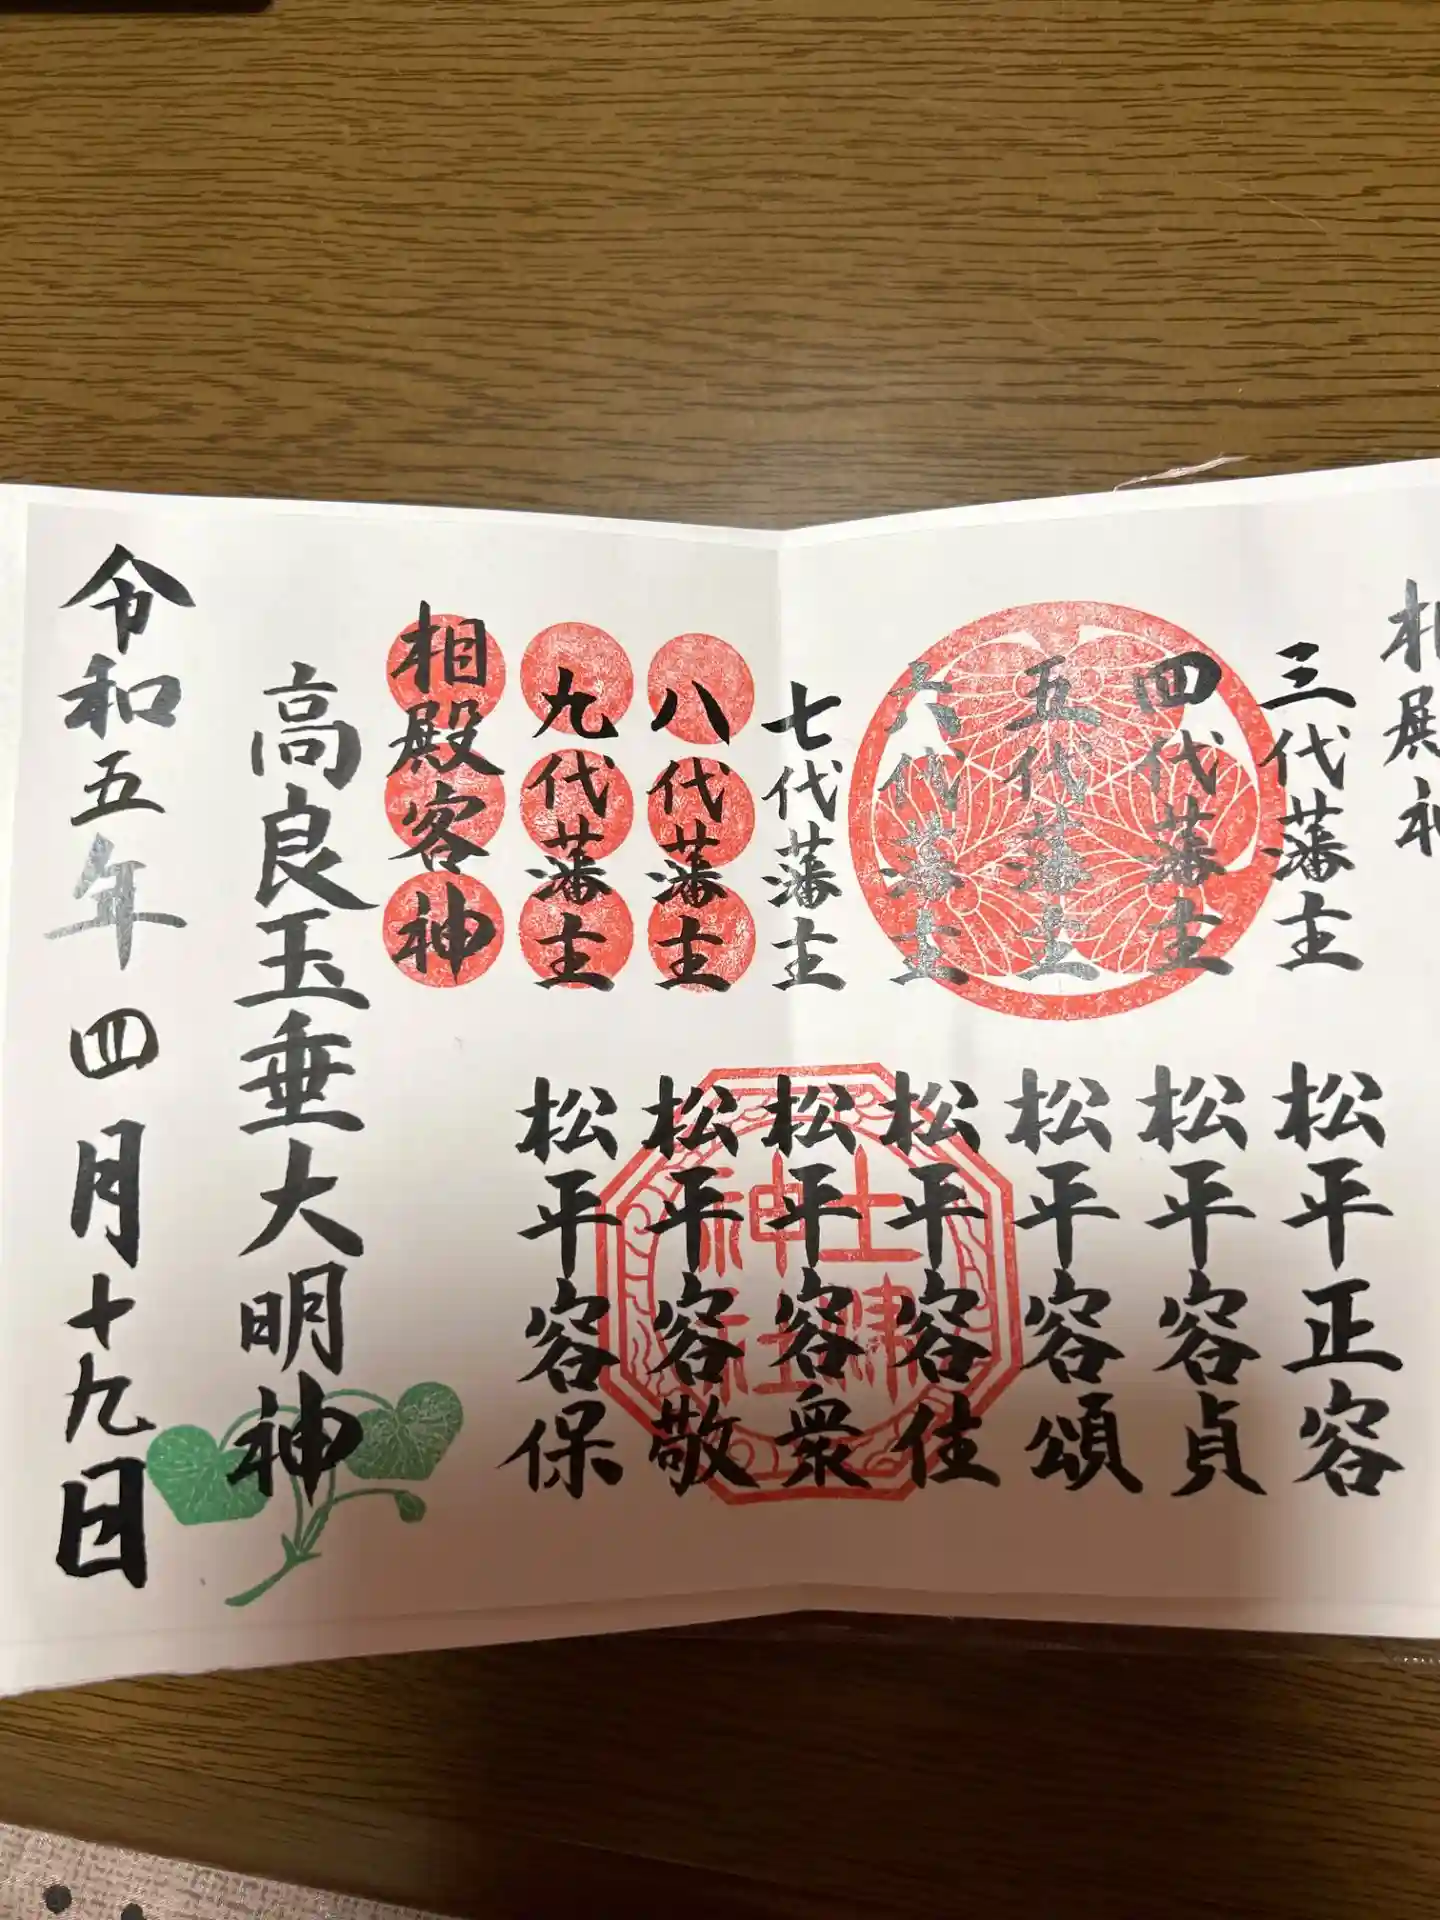 相殿神
三代藩主 松平正容
四代藩主 松平容貞
五代藩主 松平容頌
六代藩主 松平容住
七代藩主 松平容衆
八代藩主 松平容敬
九代藩主 松平容保
土津
神社
相殿客神
高良玉垂大明神
令和五年四月十九日